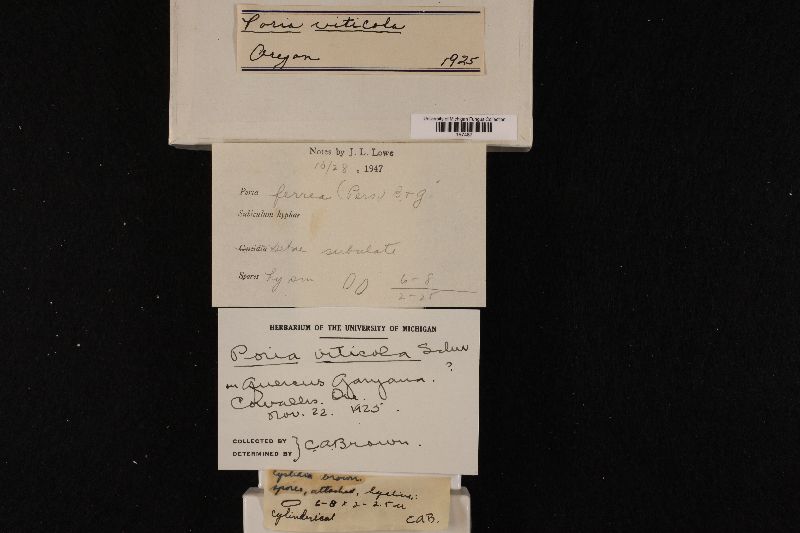 Poria viticola
Oregon 1925
University of Michigan Fungus Collection
Notes by J. L. Lowe
10/28, 1947
Poria ferrea (Pers) B+G
Subiculum hyphae
Cystidia Setae subulate
Spores hyalin 6-8
2-25
HERBARIUM OF THE UNIVERSITY OF MICHIGAN
Poria viticola Schw
?
on Quercus Garyana.
Corvallis. Ore.
Nov. 22. 1925.
COLLECTED BY
DETERMINED BY } C.A.Brown.
Cystidia brown.
spores, attached, hyaline,:
6-8 x 2-2.5 u
cylindrical C.A.B.